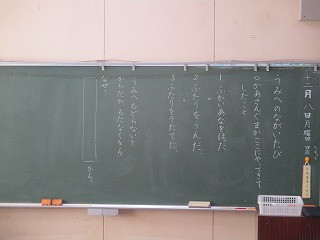 十二月八日月曜日
うみへのながいたび
〇かあさんぐまがここにやってきて
したこと
1ふかいあなをほった。
2ふたりをうんだ。
3ふたりをそだてた。
うみへもどらないと
からだがもたなくなる
から
なぜ?